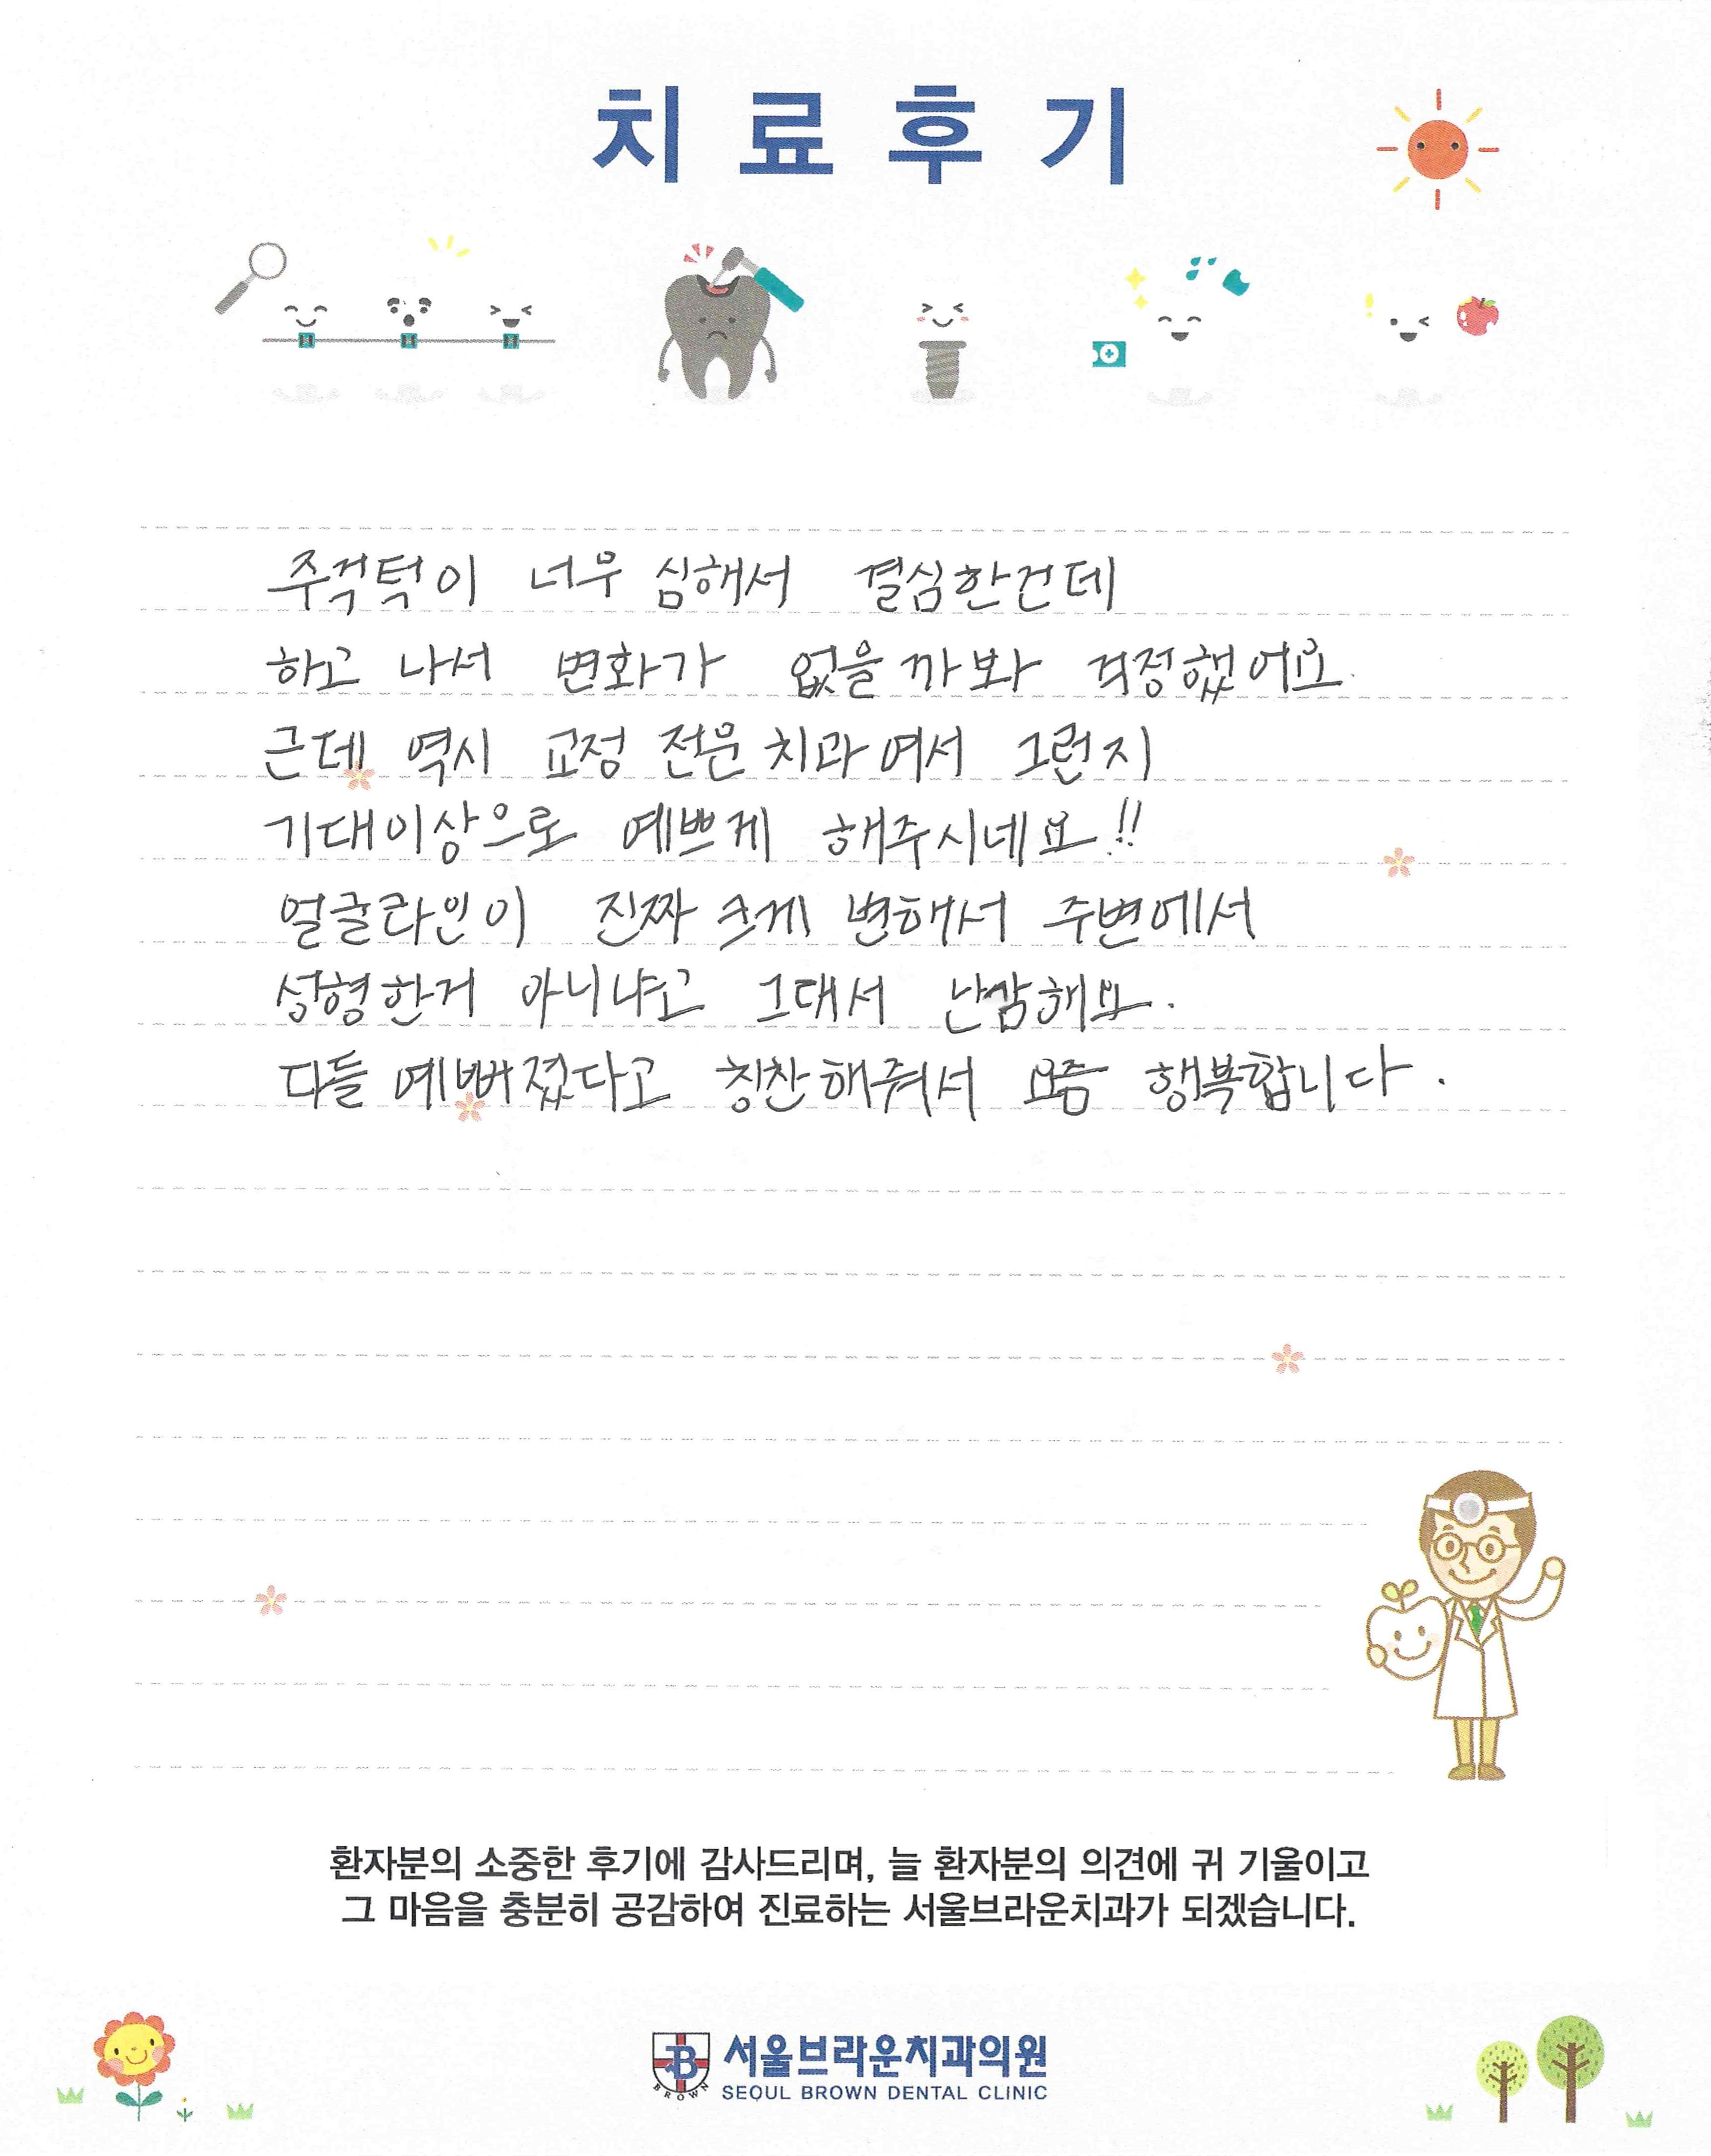 치료후기
주걱턱이 너무 심해서 결심한건데
하고 나서 변화가 없을까봐 걱정했어요.
근데 역시 교정 전문 치과여서 그런지
기대이상으로 예쁘게 해주시네요!!
얼굴라인이 진짜 크게 변해서 주변에서
성형한거 아니냐고 그래서 난감해요.
다들 예뻐졌다고 칭찬해줘서 요즘 행복합니다.
환자분의 소중한 후기에 감사드리며, 늘 환자분의 의견에 귀 기울이고
그 마음을 충분히 공감하여 진료하는 서울브라운치과가 되겠습니다.
B
BROWN
서울브라운치과의원
SEOUL BROWN DENTAL CLINIC